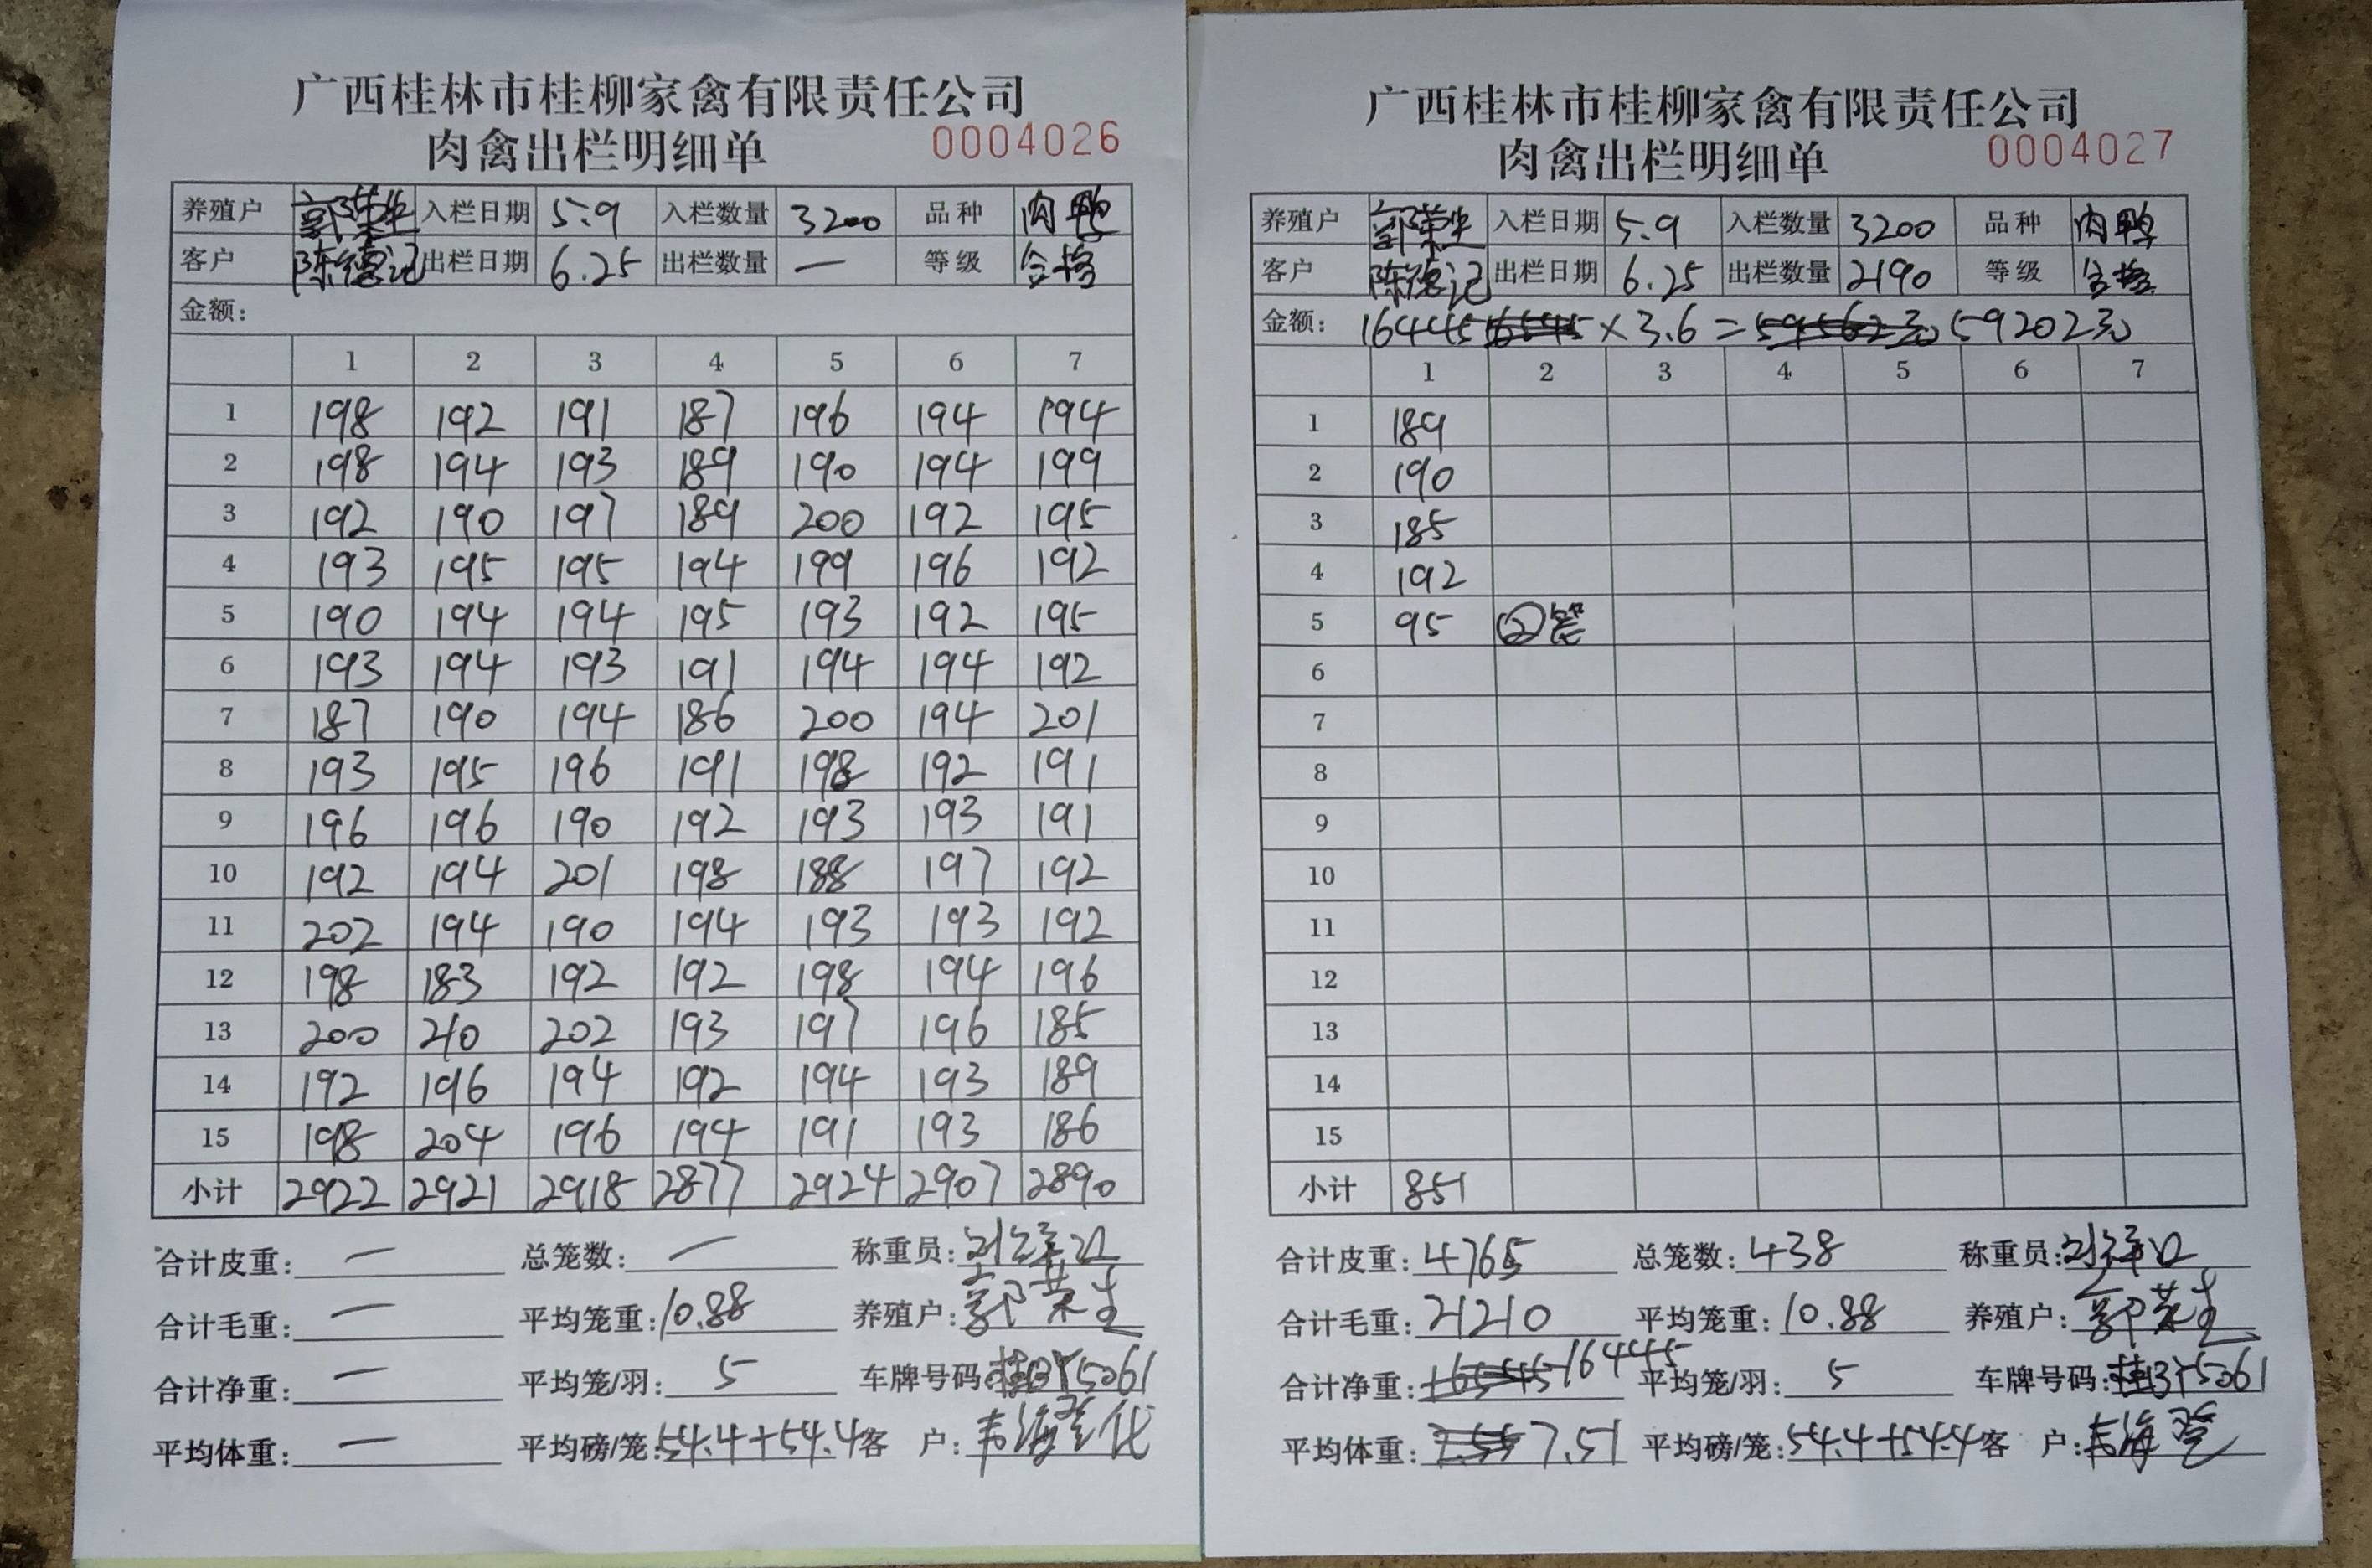 广西桂林市桂柳家禽有限责任公司
肉禽出栏明细单 0004026
养殖户 郭荣生 入栏日期 5.9 入栏数量 3200 品种 肉鸭
客户 陈德记 出栏日期 6.25 出栏数量 一 等级 合格
金额:
1 2 3 4 5 6 7
1 198 192 191 187 196 194 194
2 198 194 193 189 190 194 199
3 192 190 197 189 200 192 195
4 193 195 195 194 199 196 192
5 190 194 194 195 193 192 195
6 193 194 193 191 194 194 192
7 187 190 194 186 200 194 201
8 193 195 196 191 198 192 191
9 196 196 190 192 193 193 191
10 192 194 201 198 188 197 192
11 202 194 190 194 193 193 192
12 198 183 192 192 198 194 196
13 200 210 202 193 197 196 185
14 192 196 194 192 194 193 189
15 198 204 196 194 191 193 186
小计 2922 2921 2918 2877 2924 2907 2890
合计皮重: 一 总笼数: 一 称重员:
合计毛重: 一 平均笼重: 10.88 养殖户: 郭荣生
合计净重: 一 平均笼/羽: 5 车牌号码: 桂BY5061
平均体重: 一 平均磅/笼: 54.4+54.4 客 户:
广西桂林市桂柳家禽有限责任公司
肉禽出栏明细单 0004027
养殖户 郭荣生 入栏日期 5.9 入栏数量 3200 品种 肉鸭
客户 陈德记 出栏日期 6.25 出栏数量 2190 等级 合格
金额: 16445 16545 ×3.6=59562元 59202元
1 2 3 4 5 6 7
1 189
2 190
3 185
4 192
5 95 ②笼
6
7
8
9
10
11
12
13
14
15
小计 851
合计皮重: 4765 总笼数: 438 称重员:
合计毛重: 21210 平均笼重: 10.88 养殖户: 郭荣生
合计净重: 16545 16445 平均笼/羽: 5 车牌号码: 桂BY5061
平均体重: 7.55 7.51 平均磅/笼: 54.4+54.4 客 户: